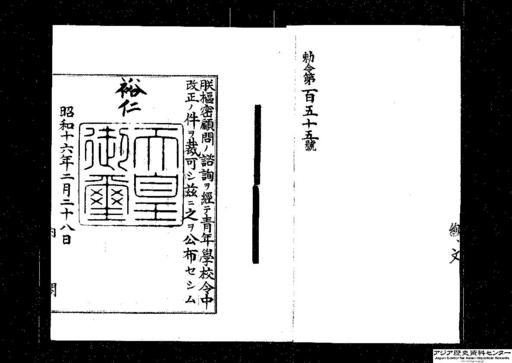 勅令第百五十五號
朕樞密顧問ノ諮詢ヲ經テ青年學校令中
改正ノ件ヲ裁可シ茲ニ之ヲ公布セシム
裕仁
天皇御璽
昭和十六年二月二十八日
内閣
アジア歴史資料センター
Japan Center for Asian Historical Records